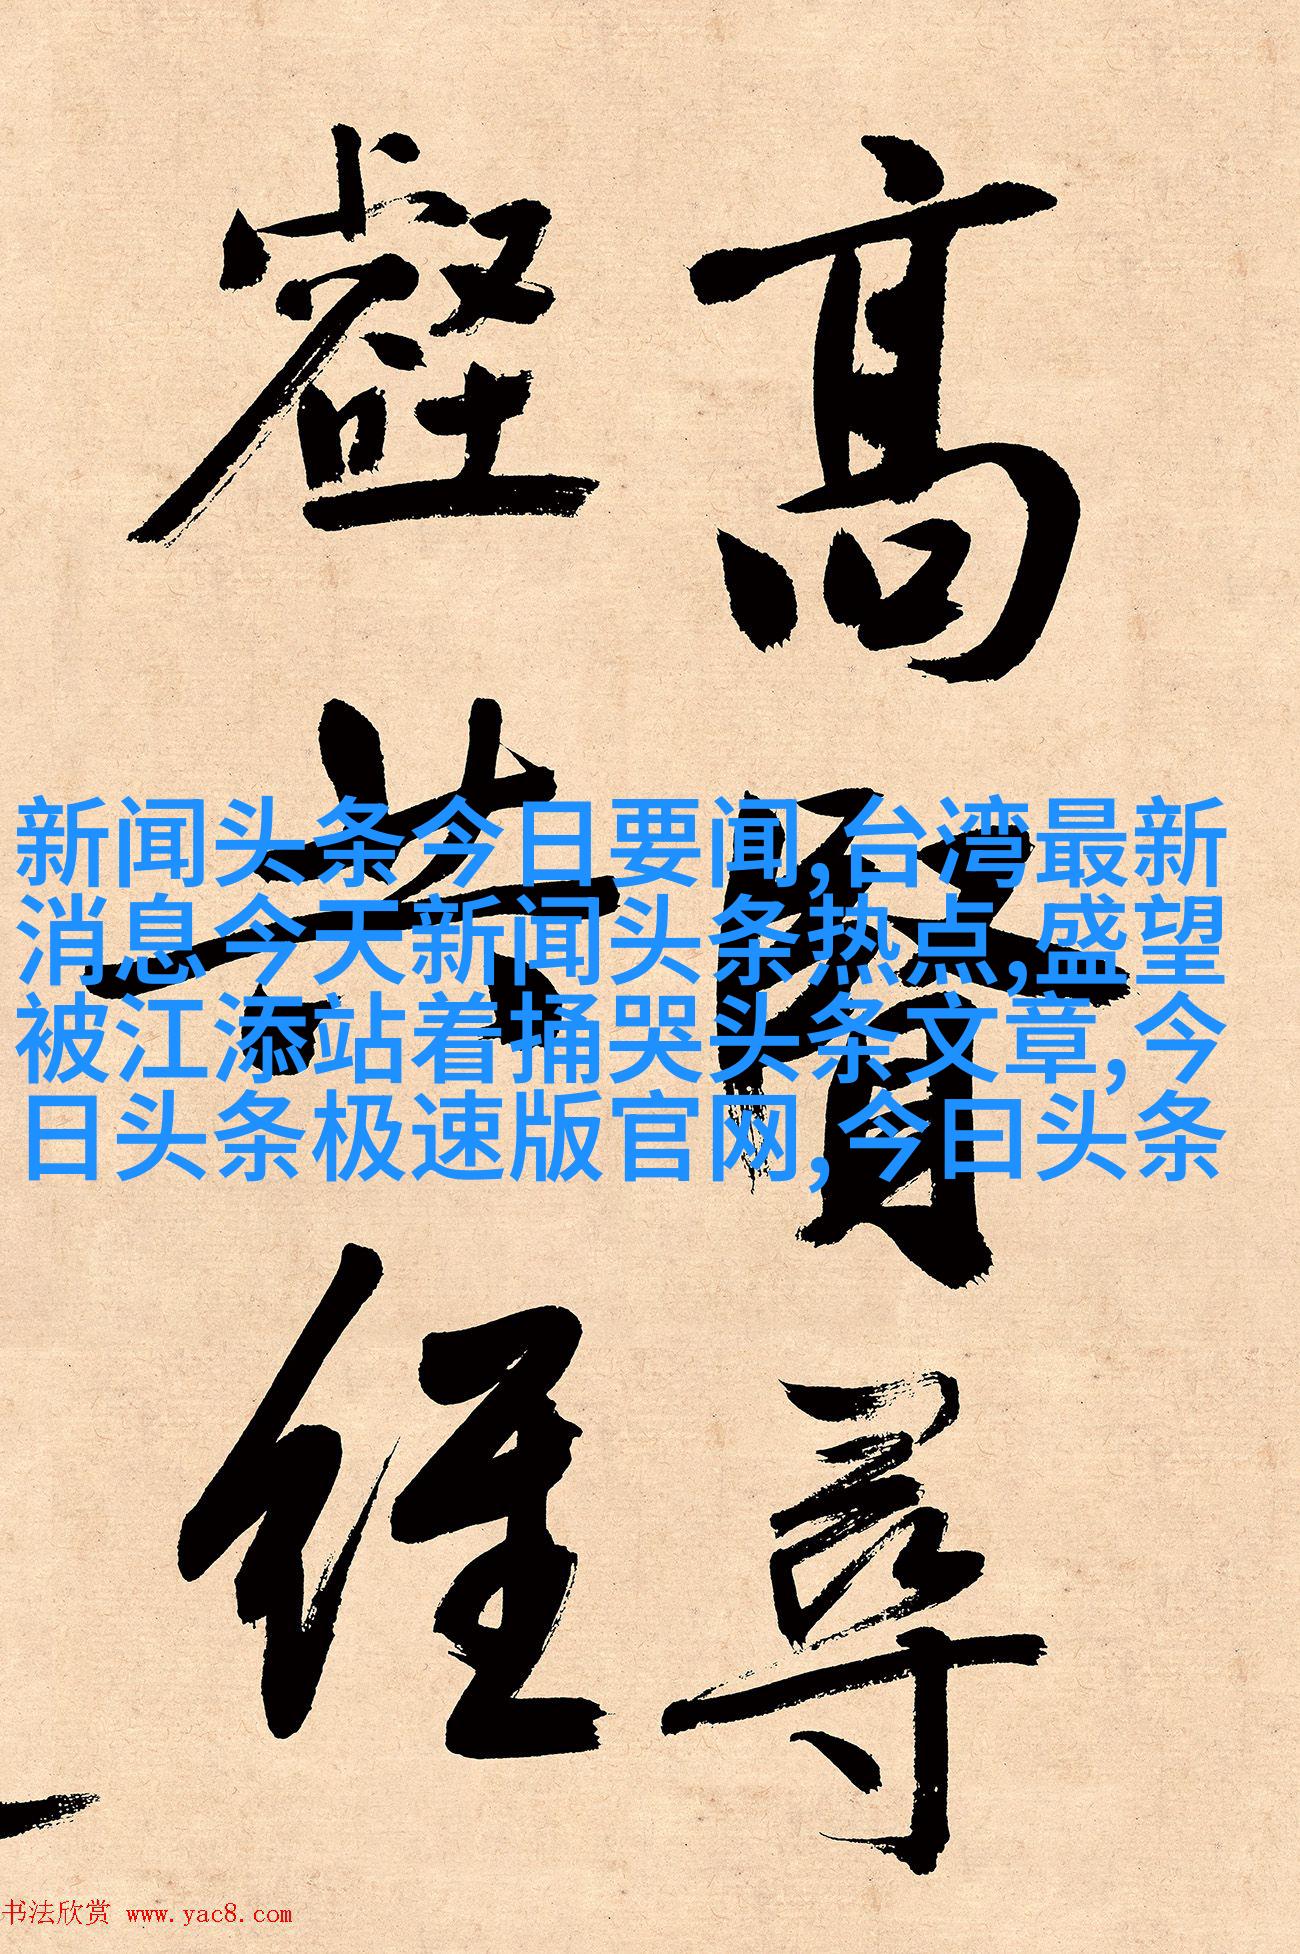 高賢尋
壑共經
新闻头条今日要闻,台湾最新
消息今天新闻头条热点,盛望
被江添站着捅哭头条文章,今
日头条极速版官网,今曰头条
书法欣赏 www.yac8.com